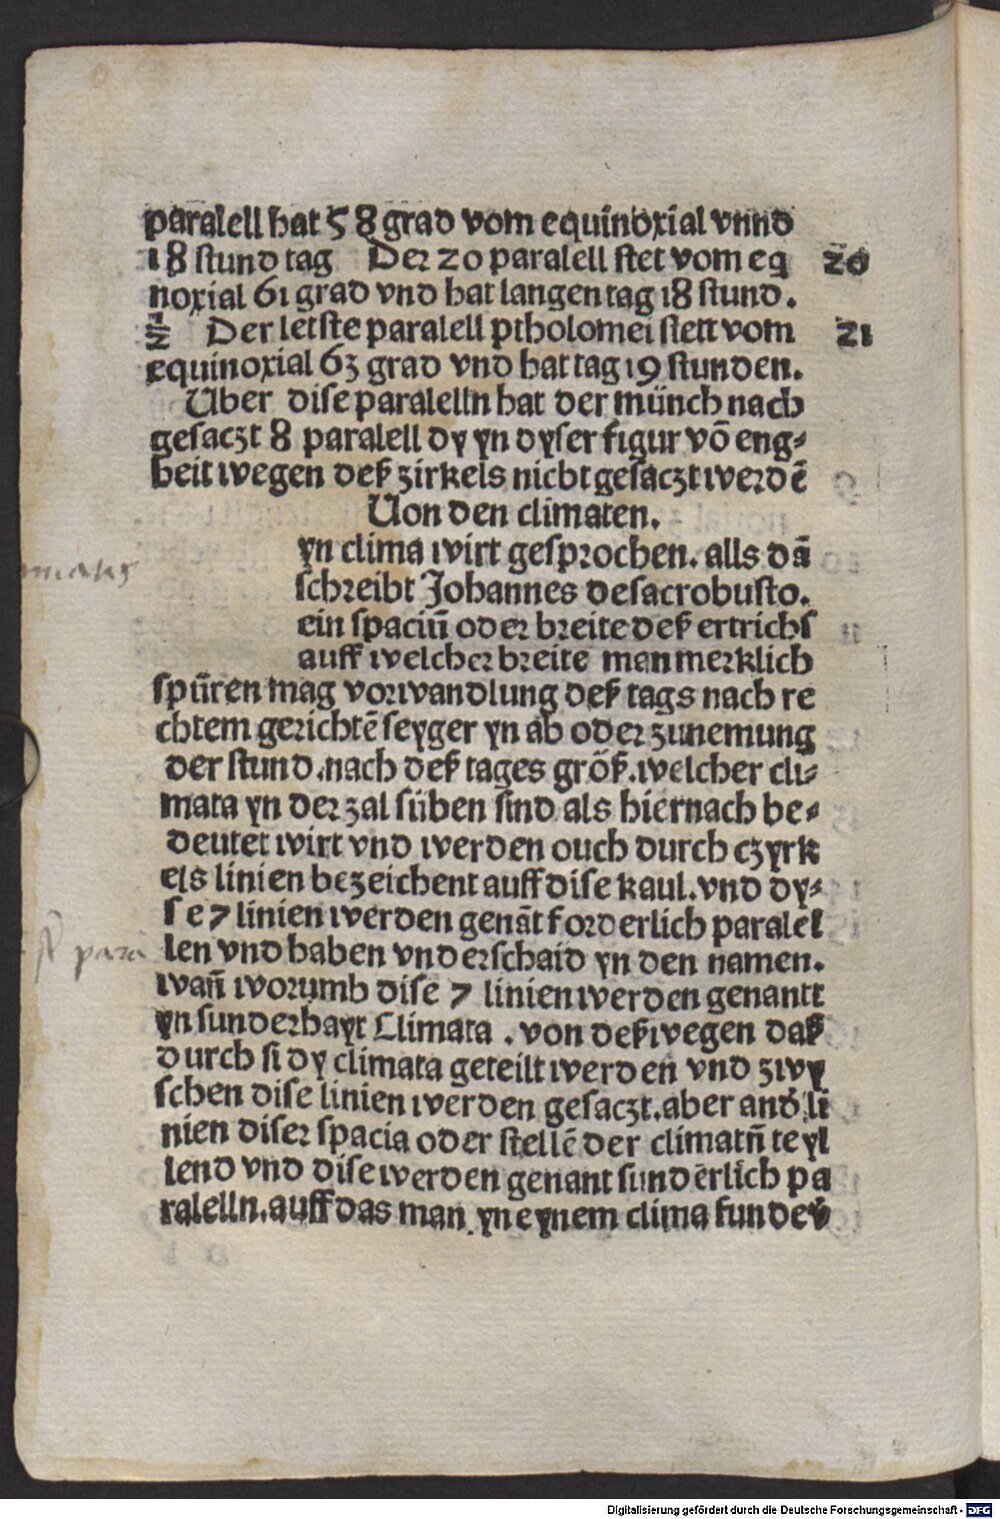 paralell hat 58 grad vom equinoxial vnnd
18 stund tag Der 20 paralell stet vom eq 20
noxial 61 grad vnd hat langen tag 18 stund.
1/2 Der letste paralell ptholomei stett vom 21
equinoxial 63 grad vnd hat tag 19 stunden.
Uber dise paralelln hat der münch nach
gesaczt 8 paralell dy yn dyser figur võ eng⸗
heit wegen deß zirkels nicht gesaczt werdē
Uon den climaten.
yn clima wirt gesprochen. alls dā
schreibt Johannes de sacrobusto.
ein spaciū oder breite deß ertrichs
auff welcher breite man merklich
spüren mag vorwandlung deß tags nach re
chtem gerichtē seyger yn ab oder zunemung
der stund. nach deß tages größ. welcher cli⸗
mata yn der zal süben sind als hiernach be⸗
deutet wirt vnd werden ouch durch czyrk
els linien bezeichent auff dise kaul. vnd dy⸗
se 7 linien werden genāt forderlich paralel
len vnd haben vnderschaid yn den namen.
para
wañ worumb dise 7 linien werden genantt
yn sunderhayt Climata . von deß wegen daß
durch si dy climata geteilt werden vnd zwy
schen dise linien werden gesaczt. aber and̕ li
nien diser spacia oder stellē der climatñ teyl
lend vnd dise werden genant sunderlich pa
ralelln. auff das man yn eynem clima funde